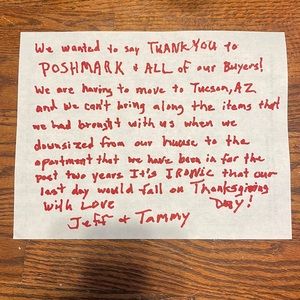 We wanted to say THANK YOU to
POSHMARK & ALL of our Buyers!
We are having to move to Tucson, AZ
and we can't bring along the items that
we had brought with us when we
downsized from our house to the
apartment that we have been in for the
past two years It's IRONIC that our
last day would fall on Thanksgiving
With LOVE Day!
Jeff & Tammy